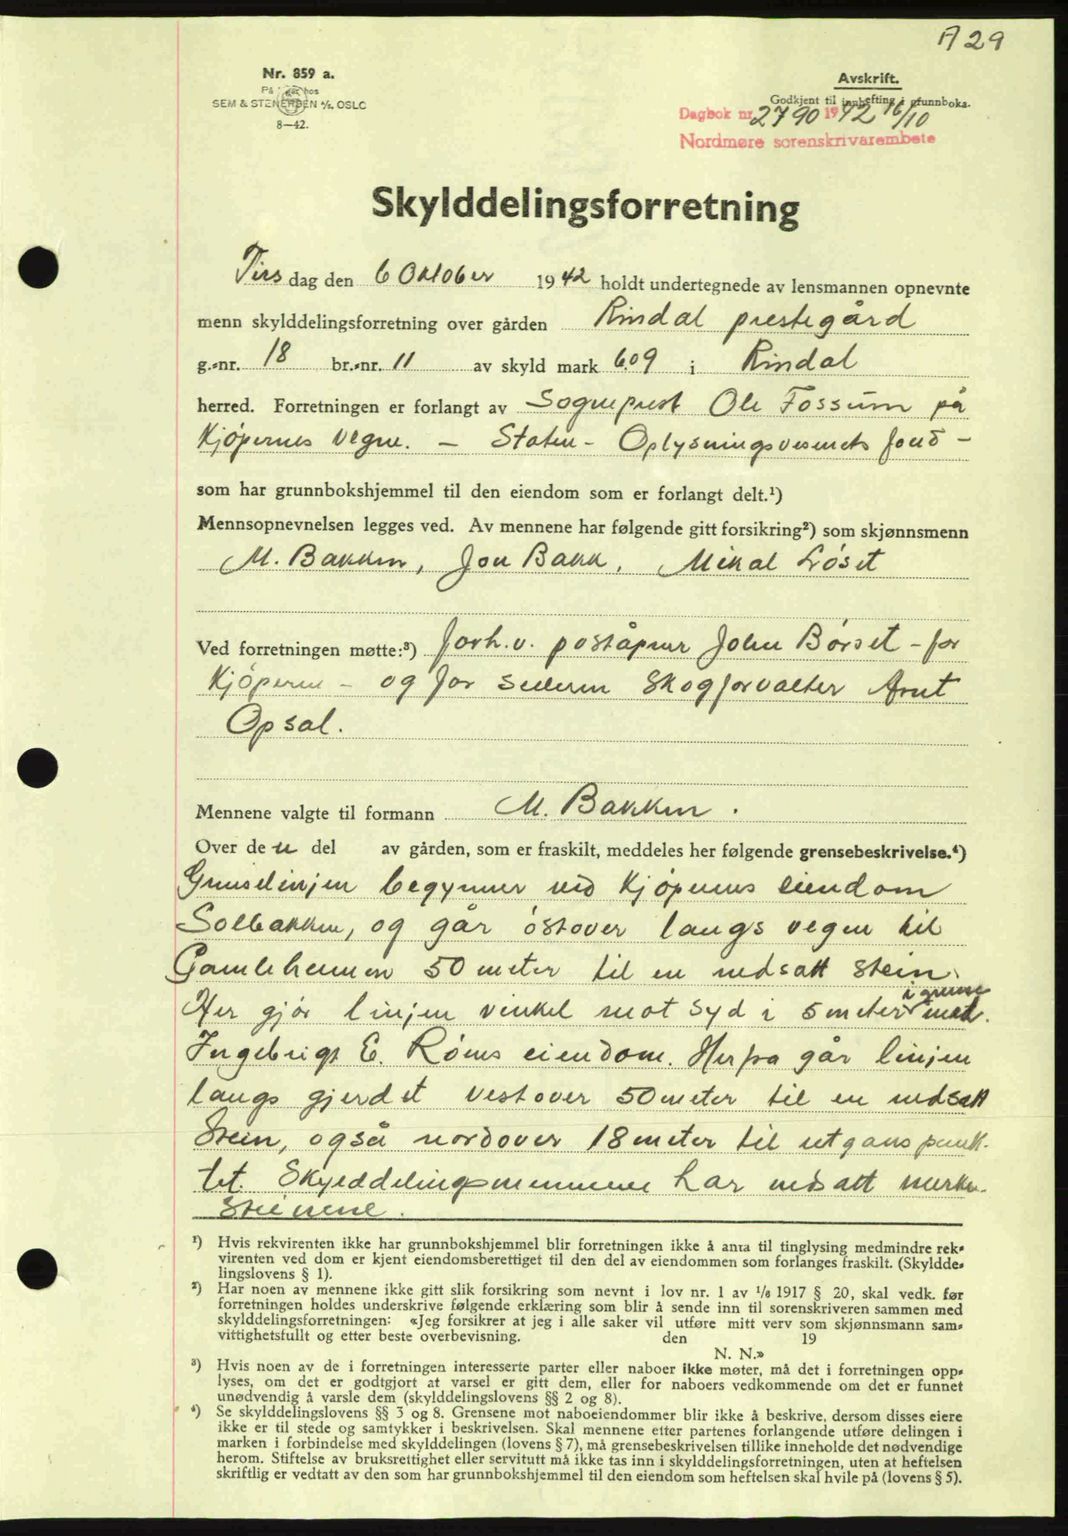 A 29
Nr. 859 a.
På lager hos
SEM & STENERSEN A/S, OSLO
8—42.
Avskrift.
Godkjent til innhefting i grunnboka.
Dagbok nr. 2790 1942 16/10
Nordmøre sorenskrivarembete
Skylddelingsforretning
Tirsdag den 6 Oktober 1942 holdt undertegnede av lensmannen opnevnte
menn skylddelingsforretning over gården Rindal prestegård
g.-nr. 18 br.-nr. 11 av skyld mark 6.09 i Rindal
herred. Forretningen er forlangt av Sogneprest Ole Fossum på
Kjöpernes vegne. — Staten - Oplysningsvesenets fond —
som har grunnbokshjemmel til den eiendom som er forlangt delt.¹)
Mennsopnevnelsen legges ved. Av mennene har følgende gitt forsikring²) som skjønnsmenn
M. Bakken, Jon Bakk, Mikal Løset
Ved forretningen møtte:³) forh.v. poståpner John Børset - for
Kjöperne - og for selleren Skogforvalter Arnt
Opsal.
Mennene valgte til formann M. Bakken.
Over den del av gården, som er fraskilt, meddeles her følgende grensebeskrivelse.⁴)
Grenselinjen begynner ved Kjöpernes eiendom
Solbakken, og går östover langs vegen til
Gamleheimen 50 meter til en nedsatt stein.
Her gjör linjen vinkel mot syd i 5 meter i grense med
Ingebrigt E. Røms eiendom. Herfra går linjen
langs gjerdet vestover 50 meter til en nedsatt
Stein, også nordover 18 meter til utgangspunk-
tet. Skylddelingsmennene har nedsatt merke-
steinene.
¹) Hvis rekvirenten ikke har grunnbokshjemmel blir forretningen ikke å anta til tinglysing medmindre rek-
virenten ved dom er kjent eiendomsberettiget til den del av eiendommen som forlanges fraskilt. (Skyldde-
lingslovens § 1).
²) Har noen av mennene ikke gitt slik forsikring som nevnt i lov nr. 1 av ¹/₆ 1917 § 20, skal vedk. før
forretningen holdes underskrive følgende erklæring som blir å sende inn til sorenskriveren sammen med
skylddelingsforretningen: «Jeg forsikrer at jeg i alle saker vil utføre mitt verv som skjønnsmann sam-
vittighetsfullt og etter beste overbevisning. den 19
N. N.»
³) Hvis noen av de i forretningen interesserte parter eller naboer ikke møter, må det i forretningen opp-
lyses, om det er godtgjort at varsel er gitt dem, eller for naboers vedkommende om det er funnet
unødvendig å varsle dem (skylddelingslovens §§ 2 og 8).
⁴) Se skylddelingslovens §§ 3 og 8. Grensene mot naboeiendommer blir ikke å beskrive, dersom disses eiere
ikke er til stede og samtykker i beskrivelsen. Skal mennene etter partenes forlangende utføre delingen i
marken i forbindelse med skylddelingen (lovens § 7), må grensebeskrivelsen tillike inneholde det nødvendige
herom. Stiftelse av bruksrettighet eller servitutt må ikke tas inn i skylddelingsforretningen, uten at heftelsen
skriftlig er vedtatt av den som har grunnbokshjemmel til den eiendom som heftelsen skal hvile på (lovens § 5).